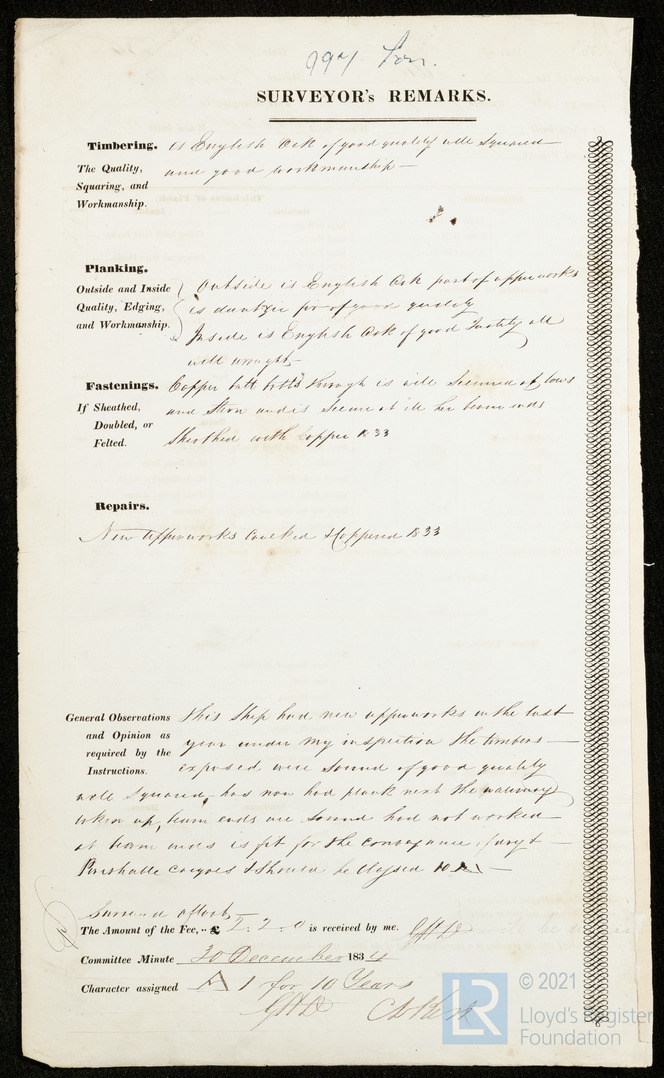 997 Lon.
SURVEYOR's REMARKS.
Timbering. is English Oak of good quality well Squared
The Quality, and good workmanship —
Squaring, and
Workmanship.
Planking. Outside is English Oak part of upperworks
Outside and Inside is dantzic fir of good quality
Quality, Edging, Inside is English Oak of good
and Workmanship. well wrought
Fastenings. Copper butt bolts through is well Secured at bows
If Sheathed, and Stern and is Secure at all her beam ends
Doubled, or Sheathed with Copper 1833
Felted.
Repairs.
New upperworks Caulked & Coppered 1833
General Observations This Ship had new upperworks in the last
and Opinion as year under my inspection the timbers —
required by the exposed were Sound of good quality
Instructions.
well Squared, has now had plank next the waterway
taken up, beam ends are Sound had not worked
at beam ends is fit for the conveyance of dry &
Perishable cargoes & should be Classed 10 A1 —
Survey'd afloat
The Amount of the Fee, .. £ 2. 2. 0 is received by me. GHD
Committee Minute 30 December 1834
Character assigned A 1 for 10 Years
GHD
LR
© 2021
Lloyd's Register
Foundation